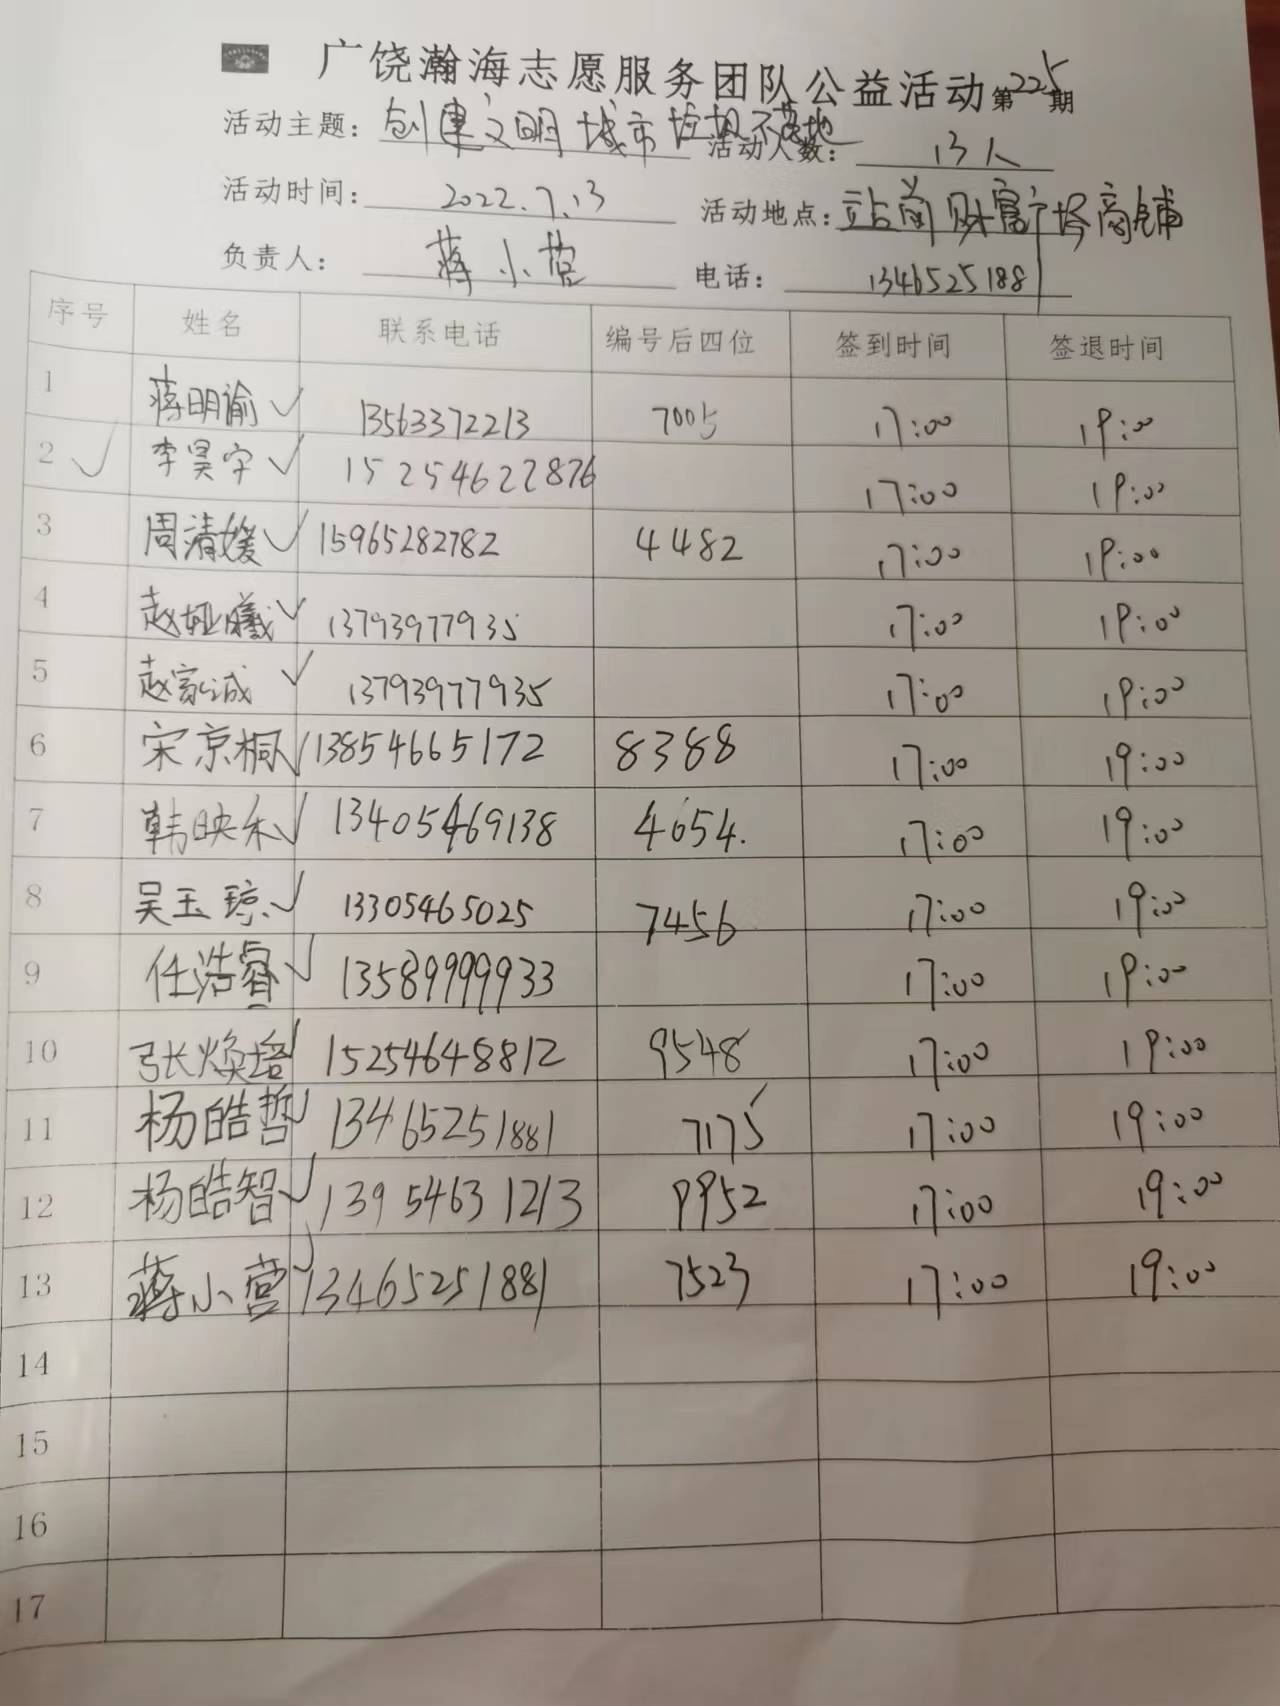 广饶瀚海志愿服务团队公益活动第225期
活动主题：创建文明城市垃圾不落地 活动人数：13人
活动时间：2022.7.13 活动地点：站前财富广场商铺
负责人：蒋小营 电话：13465251881
序号 姓名 联系电话 编号后四位 签到时间 签退时间
1 蒋明谕✓ 13563372213 7005 17:00 19:00
2 ✓ 李昊宇✓ 15254622876 17:00 19:00
3 周清媛✓ 15965282782 4482 17:00 19:00
4 赵娅曦✓ 13793977935 17:00 19:00
5 赵家诚✓ 13793977935 17:00 19:00
6 宋京桐✓ 13854665172 8388 17:00 19:00
7 韩映禾✓ 13405469138 4654. 17:00 19:00
8 吴玉琼✓ 13305465025 7456 17:00 19:00
9 任浩睿✓ 13589999933 17:00 19:00
10 张焕培✓ 15254648812 9548 17:00 19:00
11 杨皓哲✓ 13465251881 7175 17:00 19:00
12 杨皓智✓ 13954631213 9952 17:00 19:00
13 蒋小营✓ 13465251881 7523 17:00 19:00
14
15
16
17